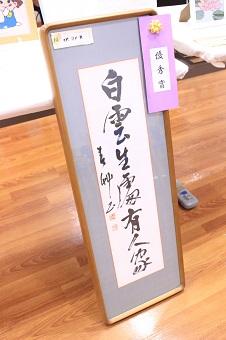 白雲生處有人家
優秀賞